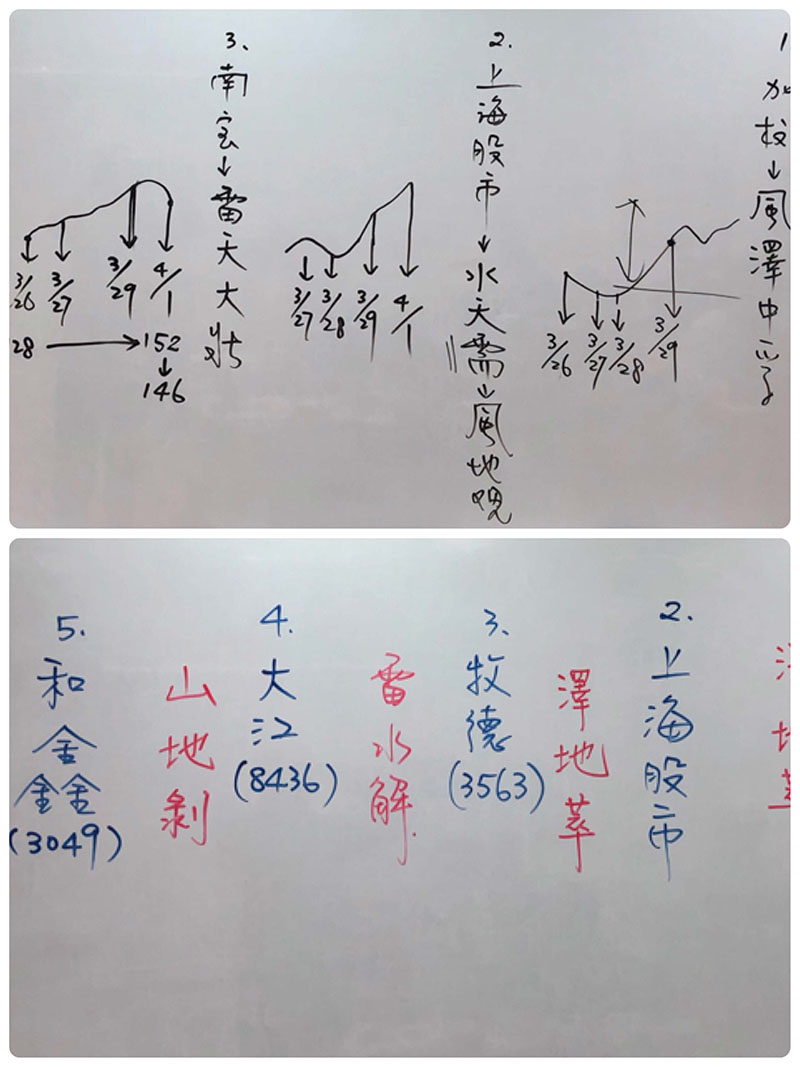 1.
加权↓風澤中孚
3/26
3/27
3/28
3/29
2.
上海股市↓水天需↓風地观
3/27
3/28
3/29
4/1
3.
南宝↓雷天大壯
3/26
3/27
3/29
4/1
28→152
↓
146
澤地萃
2.
上海股市
澤地萃
3.
牧德
(3563)
雷水解
4.
大江
(8436)
山地剝
5.
和鑫
(3049)